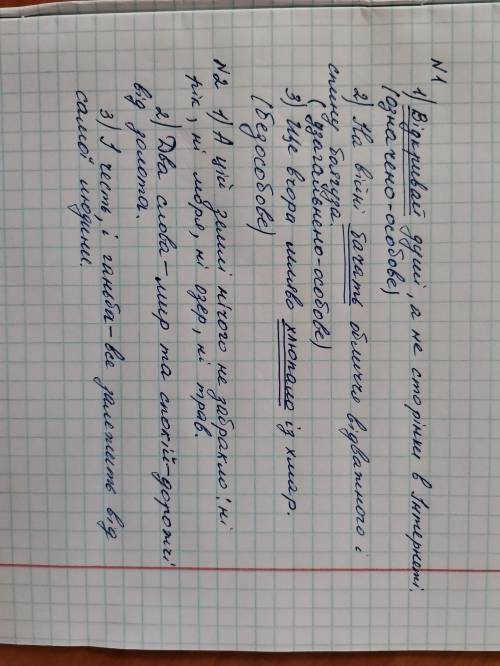 N1
1) Відкривай душі, а не сторінки в Інтернеті.
(означено-особове)
2) На війні бачать обличчя відважного і
спину боягуза.
(узагальнено-особове)
3) Ще вчора мляво хлюпало із хмар.
(безособове)
N2 1) А цій землі нічого не забракло: ні
рік, ні моря, ні озер, ні трав.
2) Два слова – мир та спокій – дорожчі
від золота.
3) І честь, і ганьба – все залежить від
самої людини.